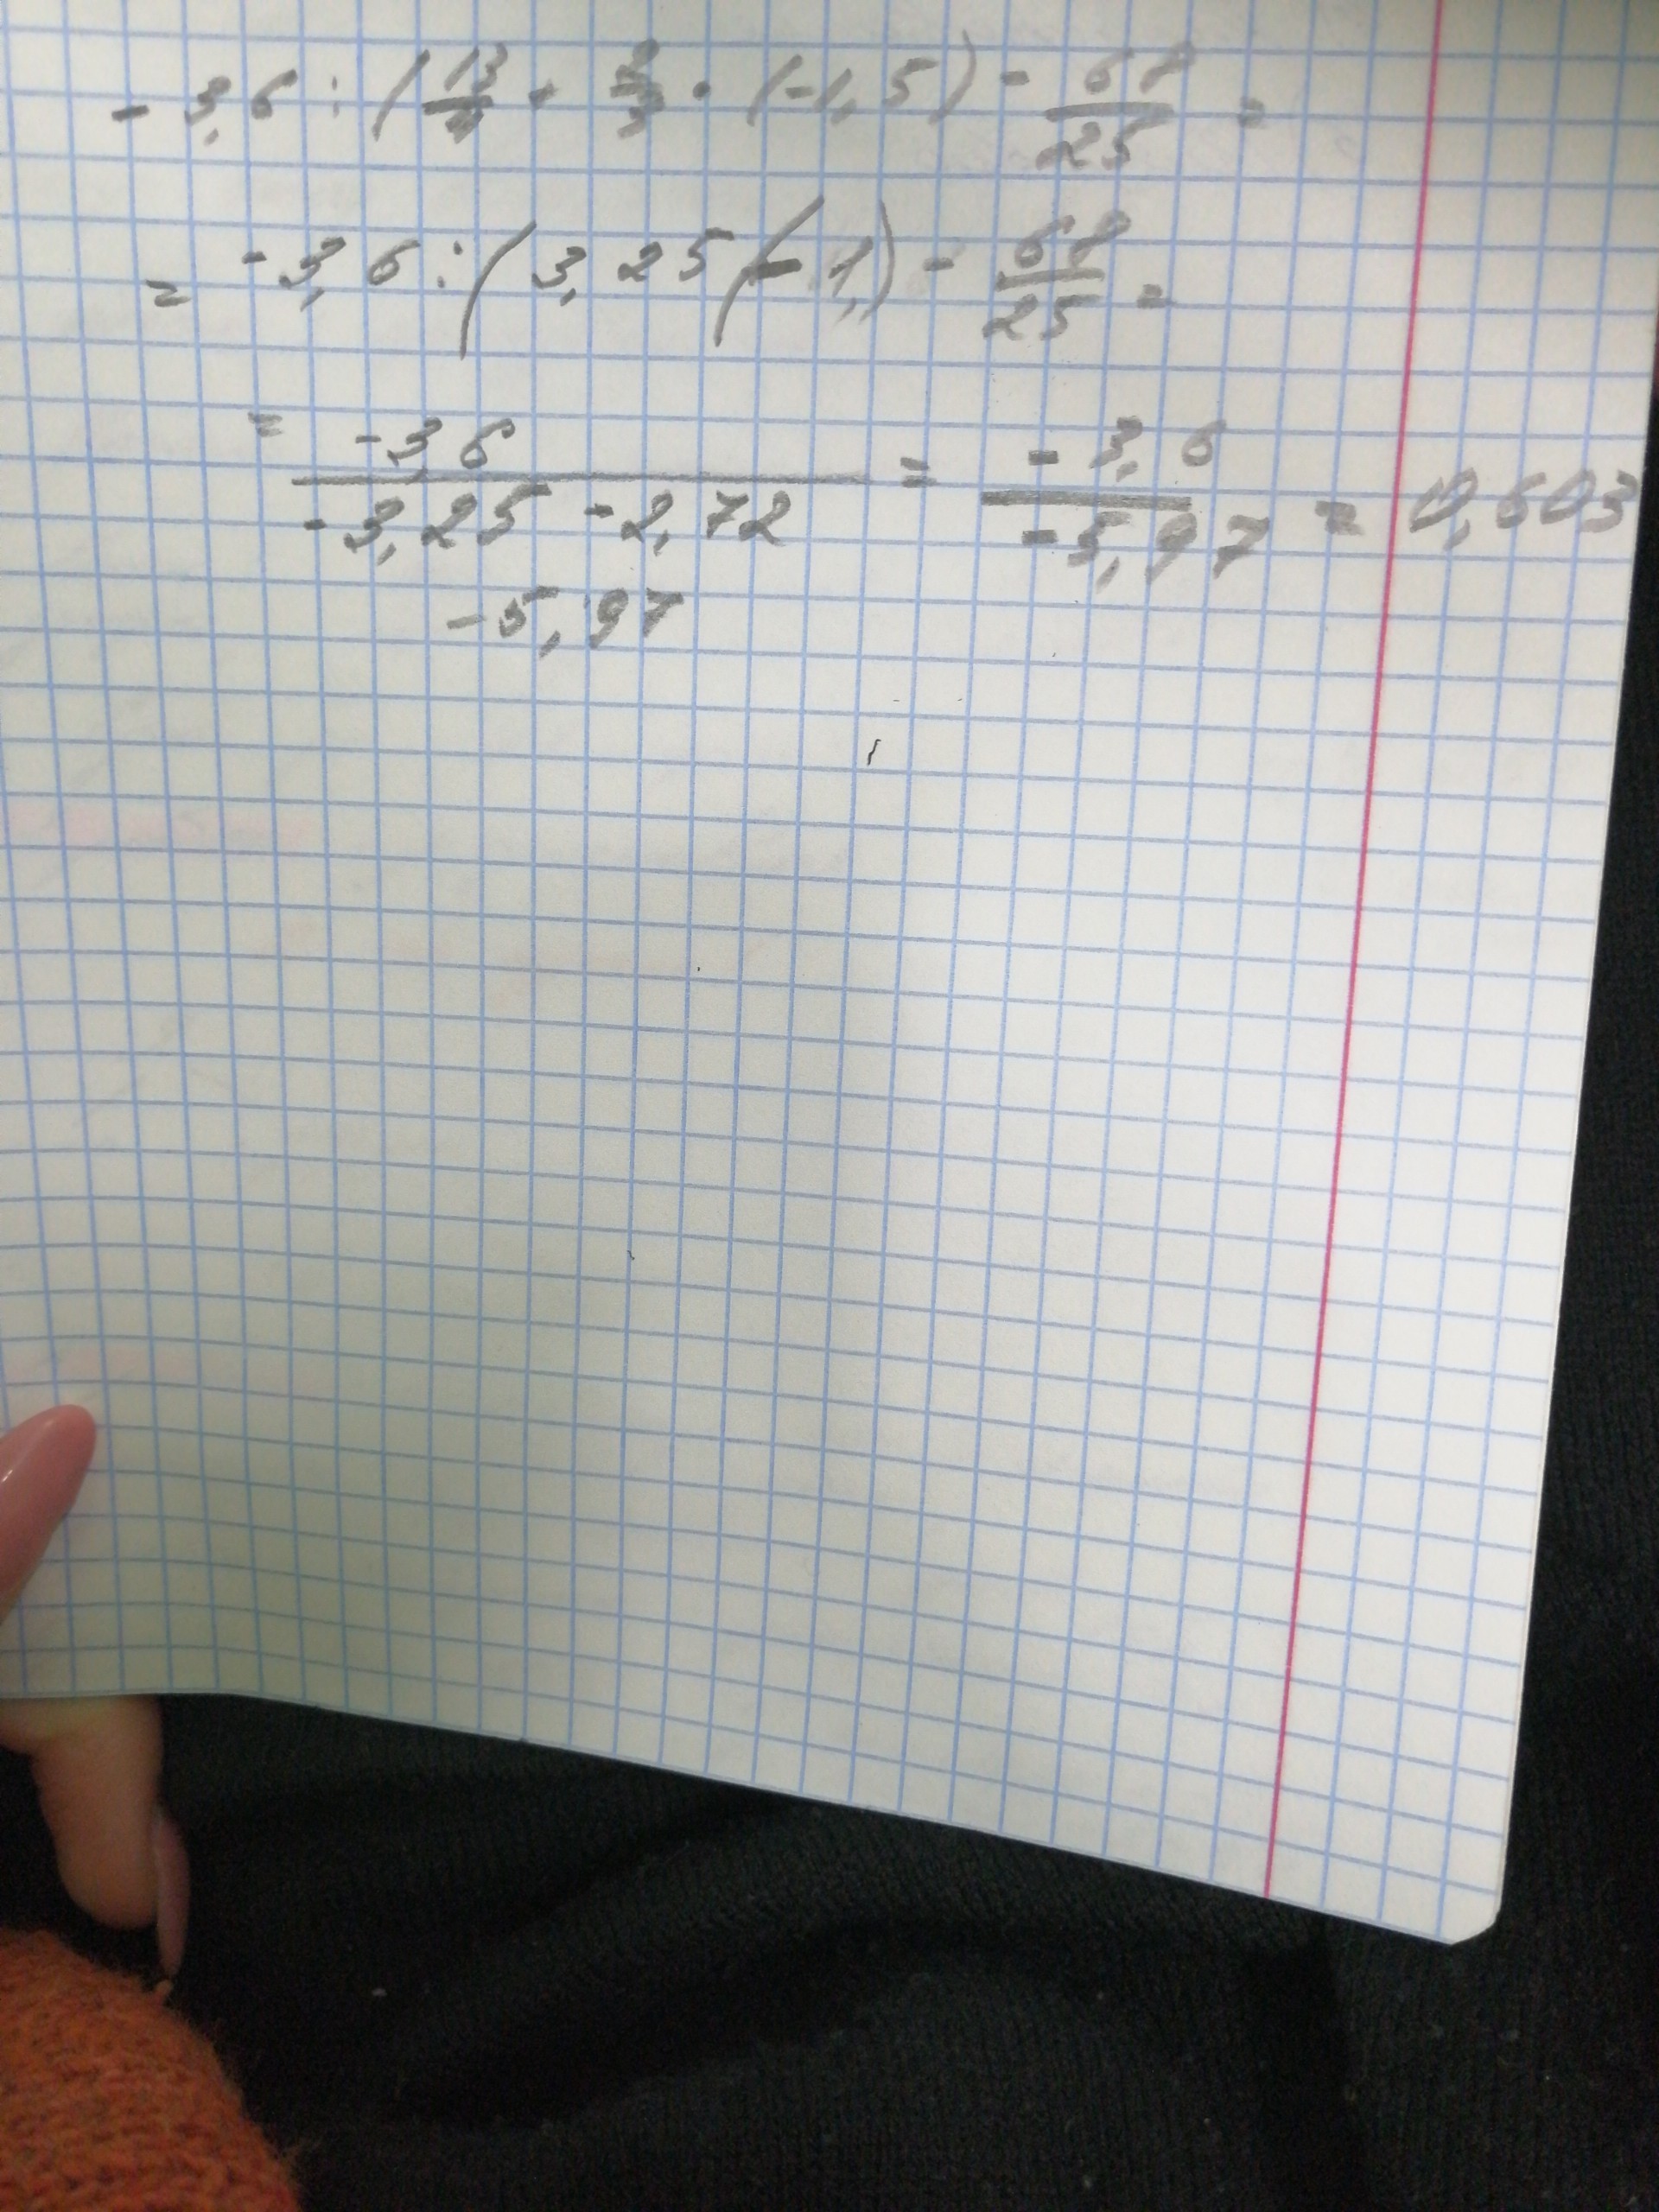 - 3,6 : (13/4 + 2/3 · (-1,5) - 68/25 =
= -3,6 : (3,25 (-1,) - 68/25 =
= -3,6 / -3,25 -2,72 = -3,6 / -5,97 = 0,603
-5,97